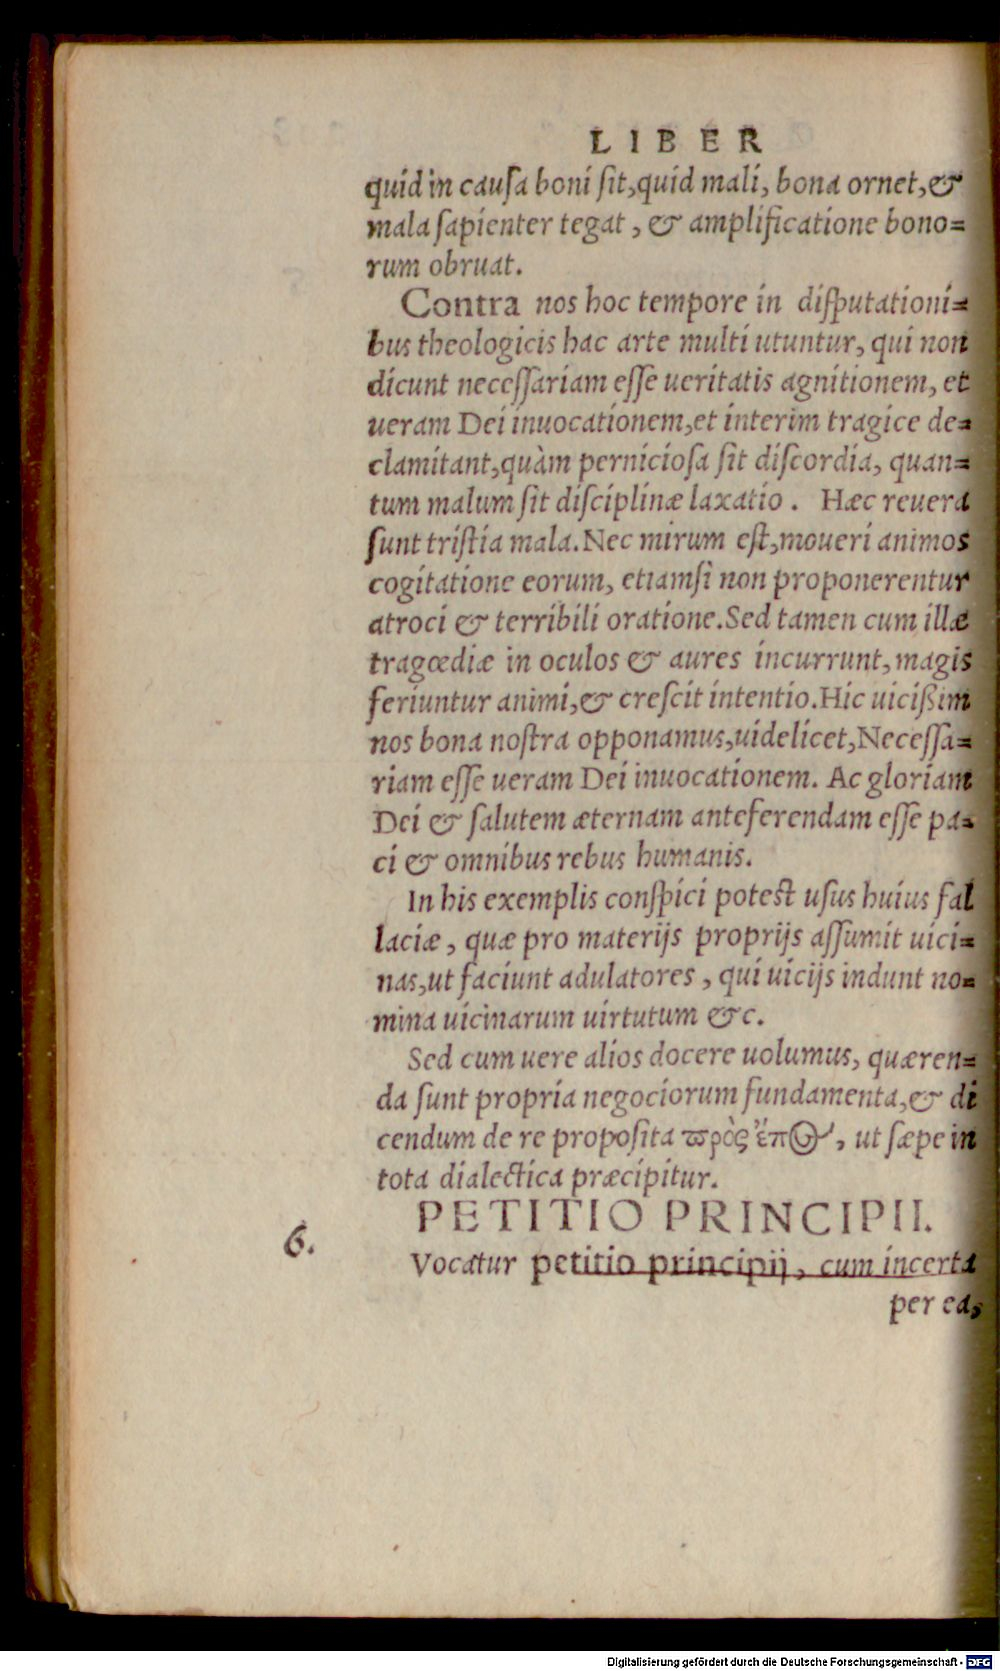 LIBER
quid in causa boni sit, quid mali, bona ornet, &
mala sapienter tegat, & amplificatione bono=
rum obruat.
Contra nos hoc tempore in disputationi=
bus theologicis hac arte multi utuntur, qui non
dicunt necessariam esse ueritatis agnitionem, et
ueram Dei inuocationem, et interim tragice de=
clamitant, quàm perniciosa sit discordia, quan=
tum malum sit disciplinæ laxatio. Hæc reuera
sunt tristia mala. Nec mirum est, moueri animos
cogitatione eorum, etiamsi non proponerentur
atroci & terribili oratione. Sed tamen cum illæ
tragœdiæ in oculos & aures incurrunt, magis
feriuntur animi, & crescit intentio. Hic uicißim
nos bona nostra opponamus, uidelicet, Necessa=
riam esse ueram Dei inuocationem. Ac gloriam
Dei & salutem æternam anteferendam esse pa=
ci & omnibus rebus humanis.
In his exemplis conspici potest usus huius fal
laciæ, quæ pro materijs proprijs assumit uici=
nas, ut faciunt adulatores, qui uicijs indunt no=
mina uicinarum uirtutum &c.
Sed cum uere alios docere uolumus, quæren=
da sunt propria negociorum fundamenta, & di
cendum de re proposita ϖρὸς ἔπος, ut sæpe in
tota dialectica præcipitur.
PETITIO PRINCIPII.
6.
Vocatur petitio principij, cum incerta
per ea,
Digitalisierung gefördert durch die Deutsche Forschungsgemeinschaft - DFG